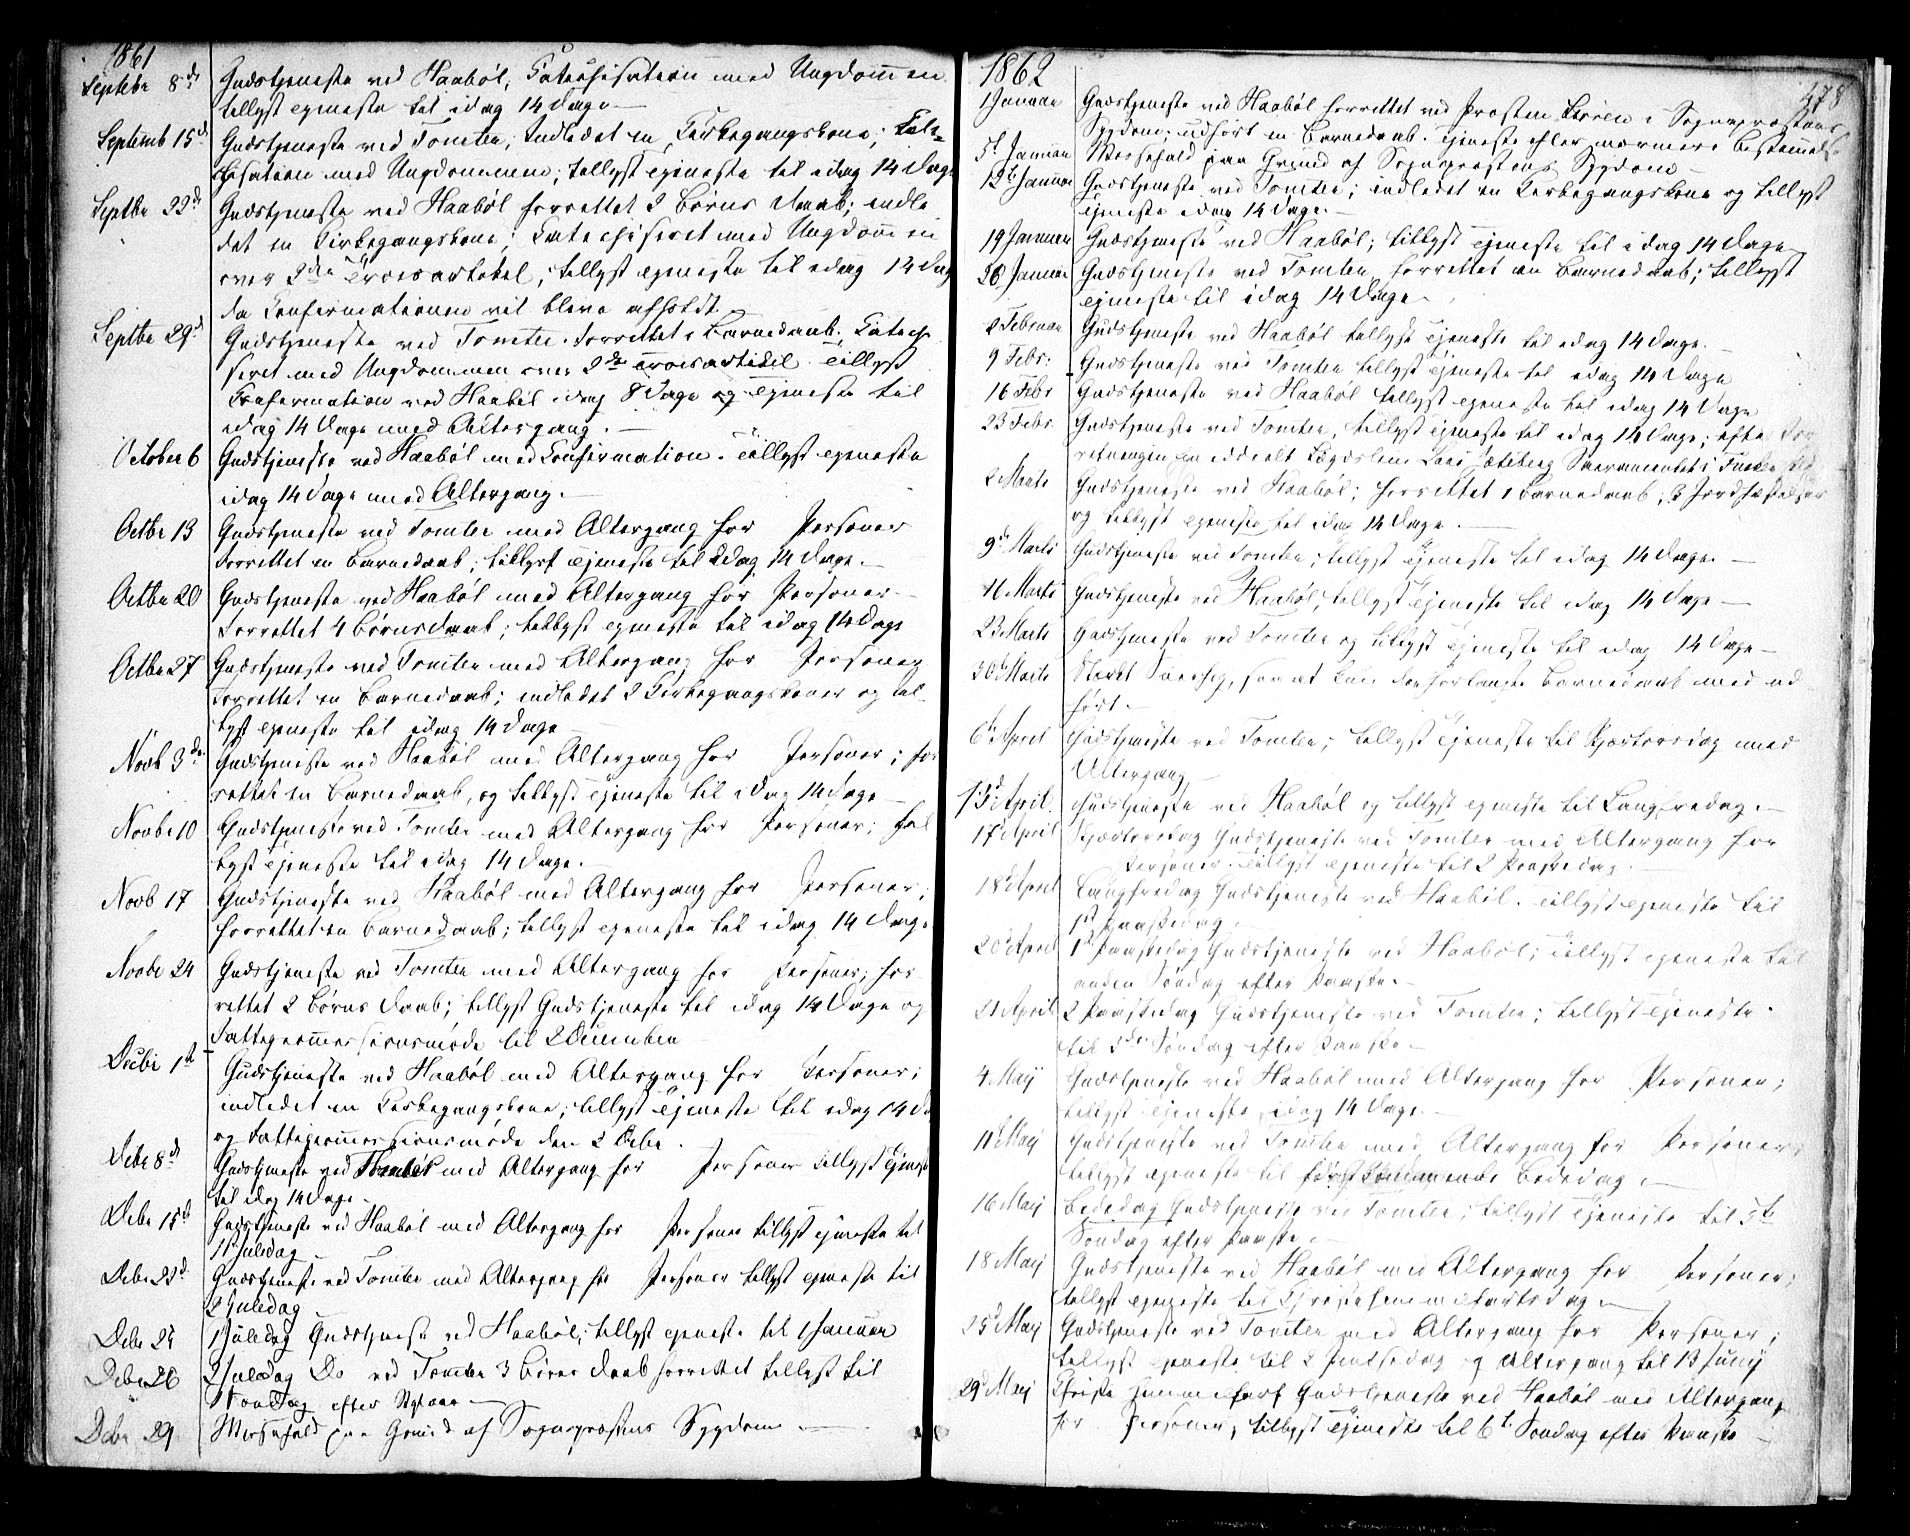 1861
Septbr 8de Gudstjeneste ved Haabøl, Catechisation med Ungdommen
tillyst Tjeneste til idag 14 Dage.
Septemb 15de Gudstjeneste ved Tomter, Indledet en Kirkegangskone; Cate-
chisation med Ungdommen; tillyst Tjeneste til idag 14 Dage
Septbr 22de Gudstjeneste ved Haabøl forrettet 2 Børns Daab; indle
det en Kirkegangskone; Catechiseret med Ungdommen
over 2den Troesartikel, tillyst Tjeneste til idag 14 Dag
da Confirmationen vil blive afholdt.
Septbr 29de Gudstjeneste ved Tomter. Forrettet 1 Barnedaab. Catechi
seret med Ungdommen over 2de Troesartikel. Tillyst
Confirmation ved Haabøl idag 8 Dage og Tjeneste til
idag 14 Dage med Altergang.
October 6 Gudstjeneste ved Haabøl med Confirmation. Tillyst Tjeneste
idag 14 Dage med Altergang.
Octbr 13 Gudstjeneste ved Tomter med Altergang for Personer
Forrettet en Barnedaab; tillyst Tjeneste til idag 14 Dage.
Octbr 20 Gudstjeneste ved Haabøl med Altergang for Personer.
Forrettet 4 Børns Daab; tillyst Tjeneste til idag 14 Dage
Octbr 27 Gudstjeneste ved Tomter med Altergang for Personer
Forrettet en Barnedaab; indledet 2 Kirkegangskoner og til-
lyst Tjeneste til idag 14 Dage
Novb 3de Gudstjeneste ved Haabøl med Altergang for Personer; for
rettet en Barnedaab, og tillyst Tjeneste til idag 14 Dage
Novbr 10 Gudstjeneste ved Tomter med Altergang for Personer; til
lyst Tjeneste til idag 14 Dage.
Novb 17 Gudstjeneste ved Haabøl med Altergang for Personer;
forrettet en Barnedaab; tillyst Tjeneste til idag 14 Dage
Novbr 24 Gudstjeneste ved Tomter med Altergang for Personer; for
rettet 2 Børns Daab; tillyst Gudstjeneste til idag 14 Dage og
Fattigcommissionsmøde til 2 December
Decbr 1st Gudstjeneste ved Haabøl med Altergang for Personer;
indledet en Kirkegangskone; tillyst Tjeneste til idag 14 D
og Fattigcommissionsmøde den 2 Decbr.
Decbr 8de Gudstjeneste ved med Altergang for Personer tillyst Tjenest
til idag 14 Dage.
Decbr 15de Gudstjeneste ved Haabøl med Altergang for Personer tillyst Tjeneste til
1 Juledag
Decbr 22d Gudstjeneste ved Tomter med Altergang for Personer tillyst Tjeneste til
2 Juledag
Decbr 25 1 Juledag Gudstjeneste ved Haabøl; tillyst Tjeneste til 1 Januar
Decbr 26 2 Juledag Do ved Tomter 3 Børns Daab forrettet tillyst til
Søndag efter Nytaar
Decbr 29 Messefald paa Grund af Sognepræstens Sygdom
1862
478
1 Januar Gudstjeneste ved Haabøl forrettet ved Provsten i Sognepræstens
Sygdom; udført en Barnedaab. Tjeneste efter nærmere Bestemmelse
5te Januar Messefald paa Grund af Sognepræstens Sygdom
12te Januar Gudstjeneste ved Tomter; indledet en Kirkegangskone og tillyst
Tjeneste idag 14 Dage.
19 Januar Gudstjeneste ved Haabøl; tillyst Tjeneste til idag 14 Dage
26 Januar Gudstjeneste ved Tomter forrettet en Barnedaab; tillyst
Tjeneste til idag 14 Dage.
2 Februar Gudstjeneste ved Haabøl tillyst Tjeneste til idag 14 Dage.
9 Febr: Gudstjeneste ved Tomter tillyst Tjeneste til idag 14 Dage
16 Febr Gudstjeneste ved Haabøl tillyst Tjeneste til idag 14 Dage
23 Febr. Gudstjeneste ved Tomter, tillyst Tjeneste til idag 14 Dage; efter For
retningen Sacramentet i
2 Marts Gudstjeneste ved Haabøl; forrettet 1 Barnedaab; 3 Jordfæstelser
og tillyst Tjeneste til idag 14 Dage.
9de Marts Gudstjeneste ved Tomter; tillyst Tjeneste til idag 14 Dage.
16 Marts Gudstjeneste ved Haabøl; tillyst Tjeneste til idag 14 Dage
23 Marts Gudstjeneste ved Tomter og tillyst Tjeneste til idag 14 Dage
30te Marts Stærkt Snefog, saa at kun forlangte Barnedaab med ud
ført.
6te April Gudstjeneste ved Tomter; tillyst Tjeneste til Skjærtorsdag med
Altergang
13de April. Gudstjeneste ved Haabøl og tillyst Tjeneste til Langfredag.
17de April Skjærtorsdag Gudstjeneste ved Tomter med Altergang for
Personer. Tillyst Tjeneste til 2 Paaskedag.
18de April Langfredag Gudstjeneste ved Haabøl. Tillyst Tjeneste til
1st Paaskedag.
20de April 1st Paaskedag Gudstjeneste ved Haabøl; tillyst Tjeneste til
anden Søndag efter Paaske.
21 April 2 Paaskedag Gudstjeneste ved Tomter; tillyst Tjeneste
til 3de Søndag efter Paaske.
4 Maij Gudstjeneste ved Haabøl med Altergang for Personer;
tillyst Tjeneste idag 14 Dage.
11te Maij Gudstjeneste ved Tomter med Altergang for Personer;
tillyst Tjeneste til førstkommende Bededag.
16 Maij Bededag Gudstjeneste ved Tomter; tillyst Tjeneste til 5te
Søndag efter Paaske.
18 Maij Gudstjeneste ved Haabøl med Altergang for Personer;
tillyst Tjeneste til Christi Himmelfartsdag
25de Maij Gudstjeneste ved Tomter med Altergang for Personer;
tillyst Tjeneste til 2 Pintsedag og Altergang til 13 Junij
29de Maij Christi Himmelfart Gudstjeneste ved Haabøl med Altergang
for Personer; tillyst Tjeneste til 6te Søndag efter Paaske